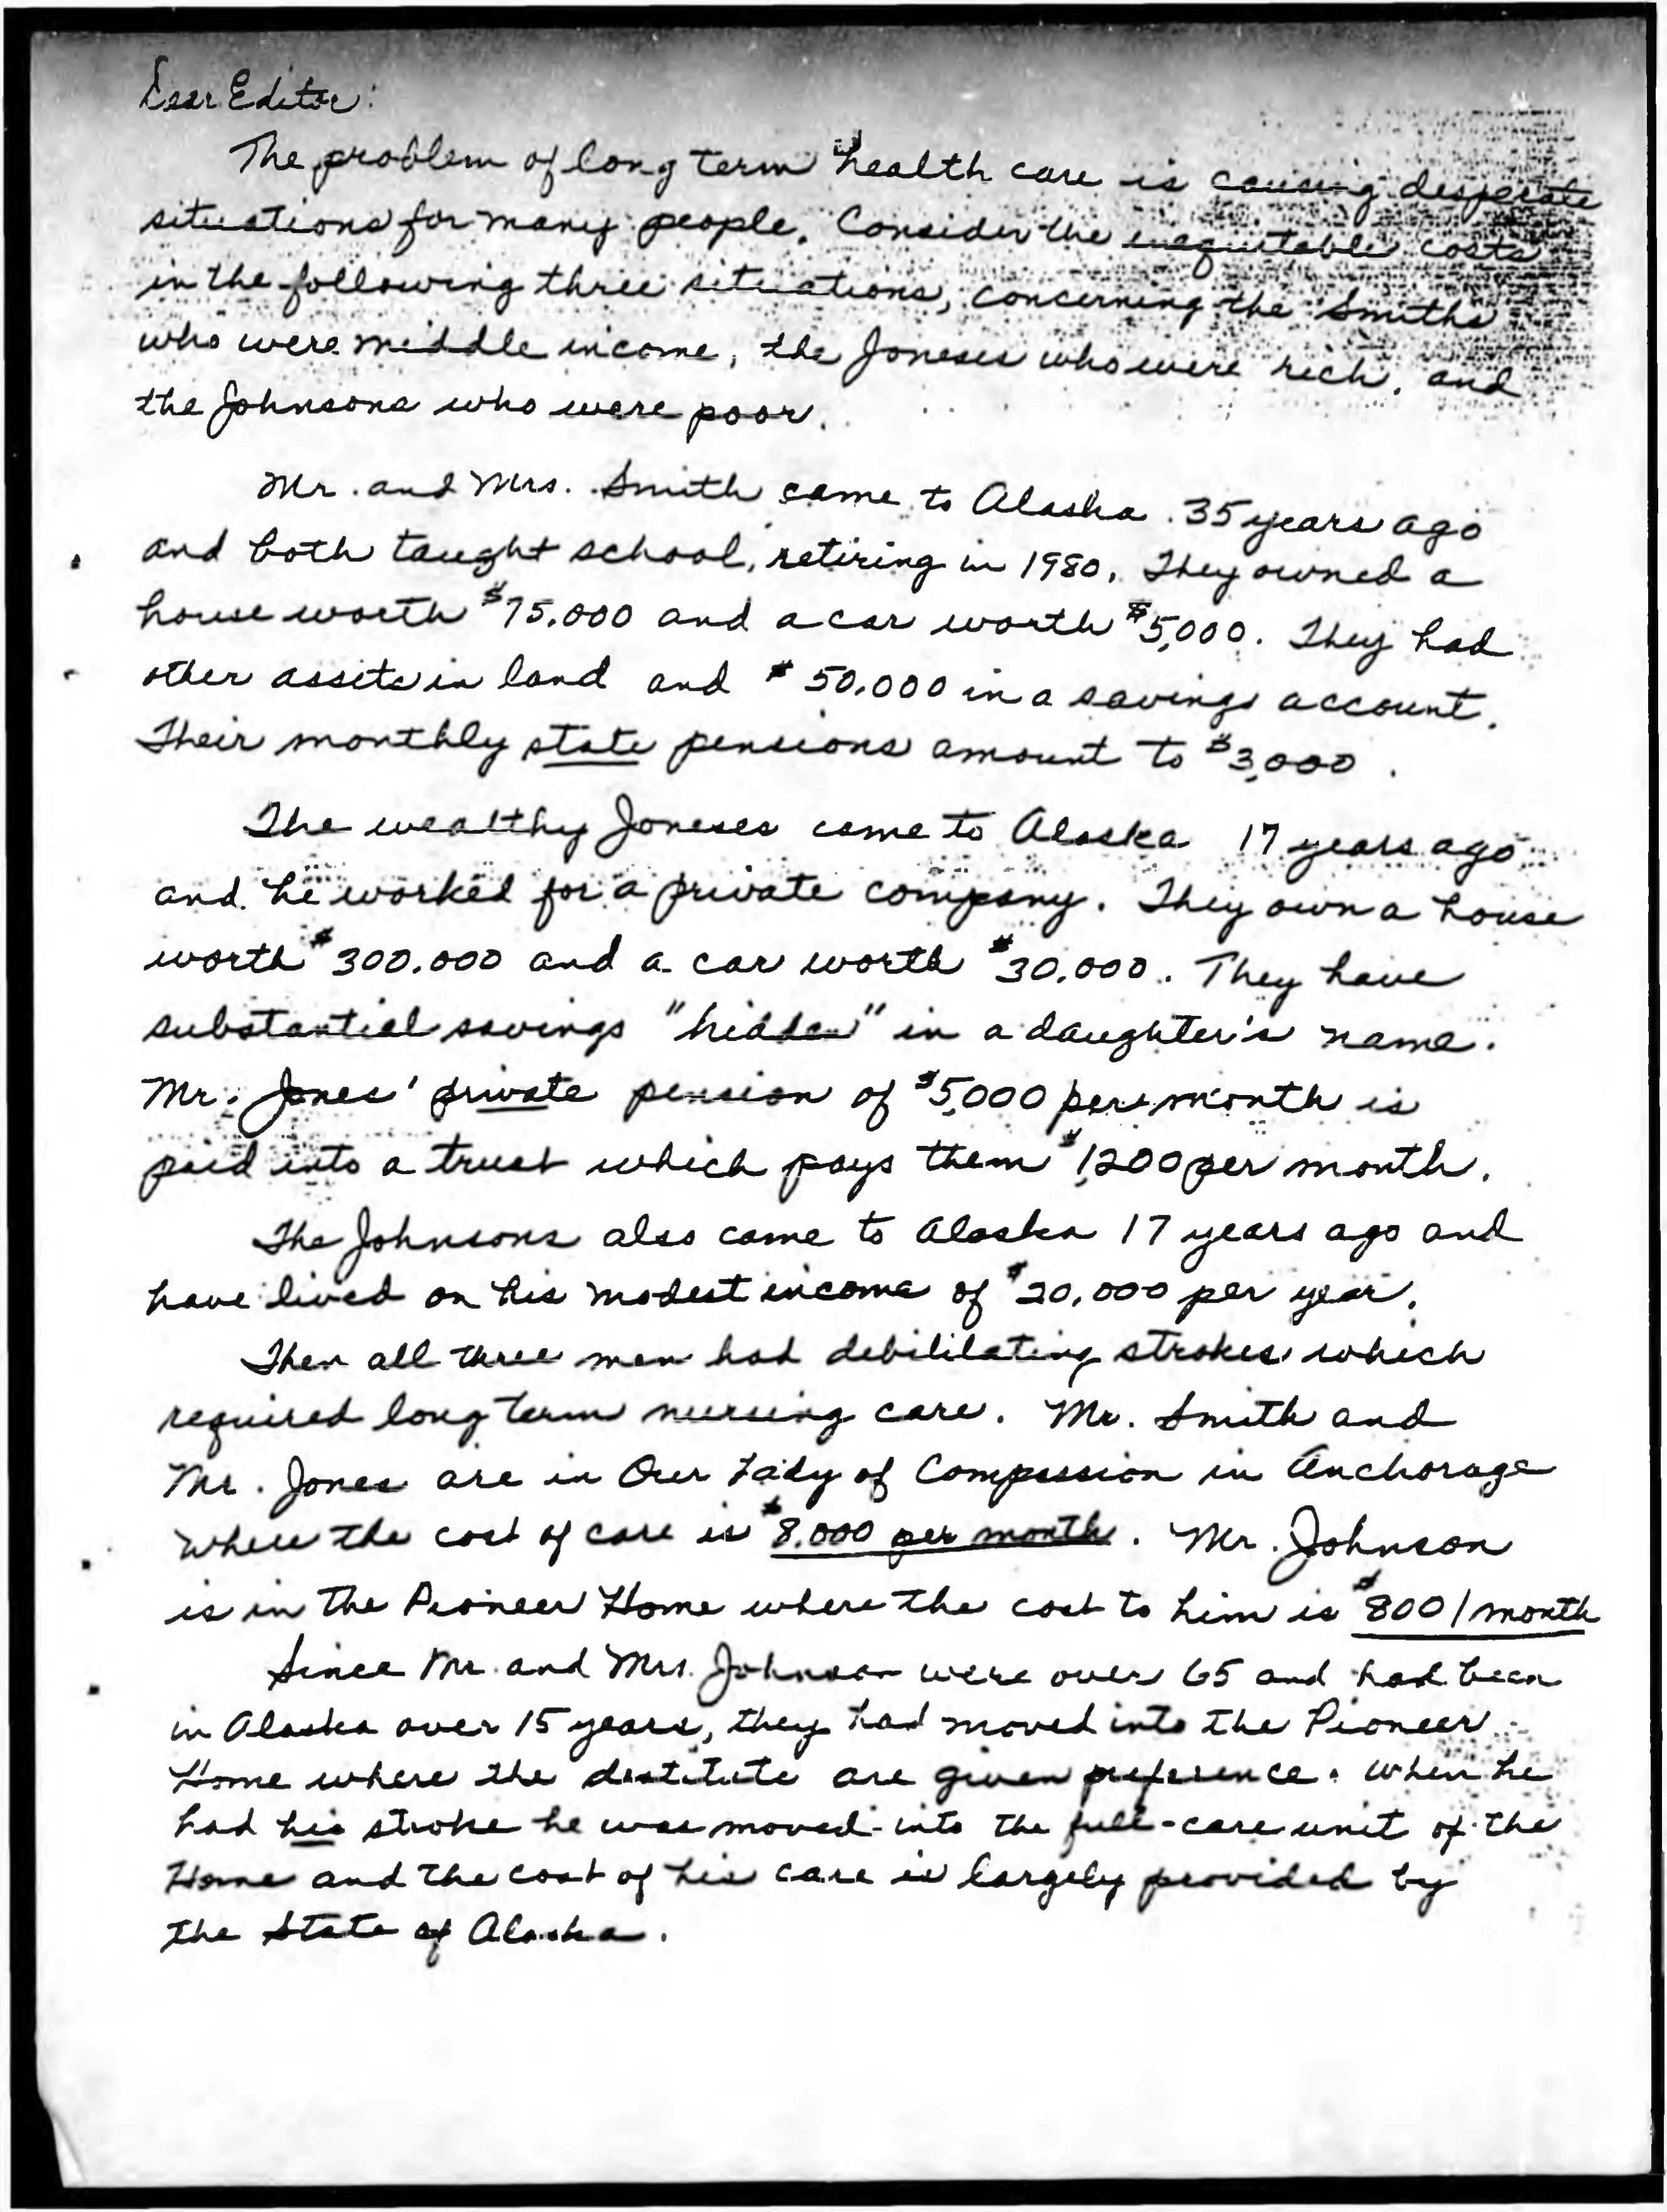 Dear Editor:
The problem of long term health care is causing desperate
situations for many people. Consider the inequitable costs
in the following three situations, concerning the Smiths
who were middle income, the Joneses who were rich, and
the Johnsons who were poor.
Mr. and Mrs. Smith came to Alaska 35 years ago
and both taught school, retiring in 1980. They owned a
house worth $75,000 and a car worth $5,000. They had
other assets in land and $50,000 in a savings account.
Their monthly state pensions amount to $3,000.
The wealthy Joneses came to Alaska 17 years ago
and he worked for a private company. They own a house
worth $300,000 and a car worth $30,000. They have
substantial savings "hidden" in a daughter's name.
Mr. Jones' private pension of $5,000 per month is
paid into a trust which pays them $1,200 per month.
The Johnsons also came to Alaska 17 years ago and
have lived on his modest income of $20,000 per year.
Then all three men had debililating strokes which
required long term nursing care. Mr. Smith and
Mr. Jones are in Our Lady of Compassion in Anchorage
where the cost of care is $8,000 per month. Mr. Johnson
is in the Pioneer Home where the cost to him is $800/month
Since Mr. and Mrs. Johnson were over 65 and had been
in Alaska over 15 years, they had moved into the Pioneer
Home where the destitute are given preference. When he
had his stroke he was moved into the full-care unit of the
Home and the cost of his care is largely provided by
the State of Alaska.